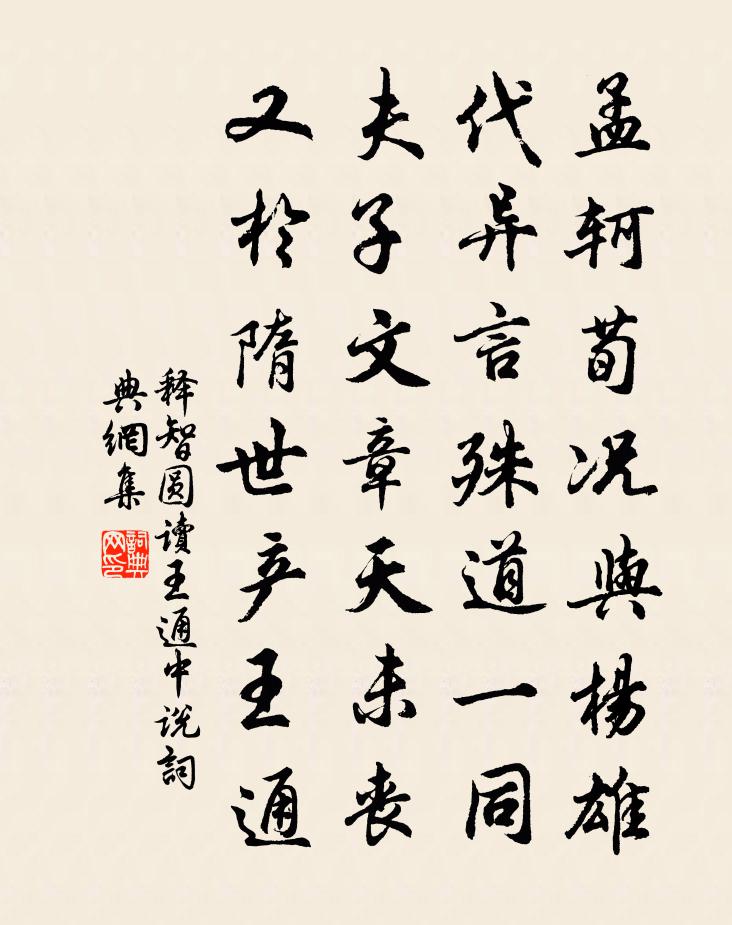 孟轲荀况與楊雄
代异言殊道一同
夫子文章天未喪
又於隋世产王通
释智圆讀王通中说詞
典網集
詞典网印